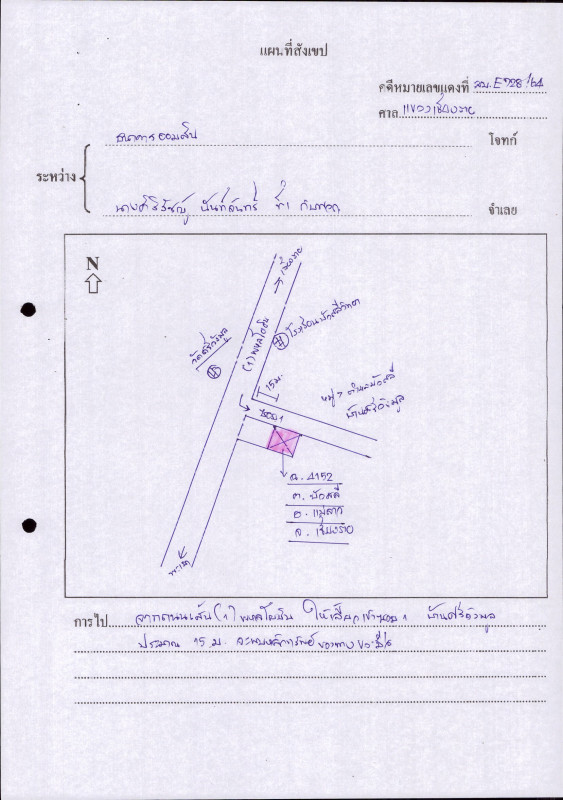 แผนที่สังเขป
คดีหมายเลขแดงที่ ผบ.E728/64
ศาล แขวงเชียงราย
ธนาคารออมสิน
โจทก์
ระหว่าง
นาง ที่ 1 กับพวก
จำเลย
N
เชียงราย
(1) พหลโยธิน
โรงเรียนบัวสลีวิทยา
วัดศรีวังมูล
15 ม.
ซอย 1
หมู่ 7 ตำบลบัวสลี
บ้านศรีวังมูล
ฉ. 4152
ต. บัวสลี
อ. แม่ลาว
จ. เชียงราย
พะเยา
การไป จากถนนเส้น (1) พหลโยธิน ให้เลี้ยวเข้าซอย 1 บ้านศรีวังมูล
ประมาณ 15 ม. จะพบหลักทรัพย์